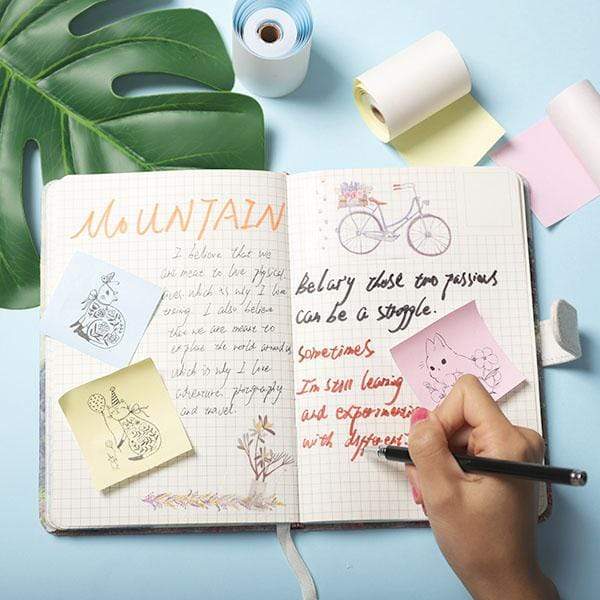 MOUNTAIN
I believe that we
are meant to live physical
lives. which is why I love
I also believe
that we are meant to
explore the world around us
which is why I love
adventure, photography
and travel.
Belary those two passions
can be a stroggle.
sometimes
I'm still learning
and experimenting
with different